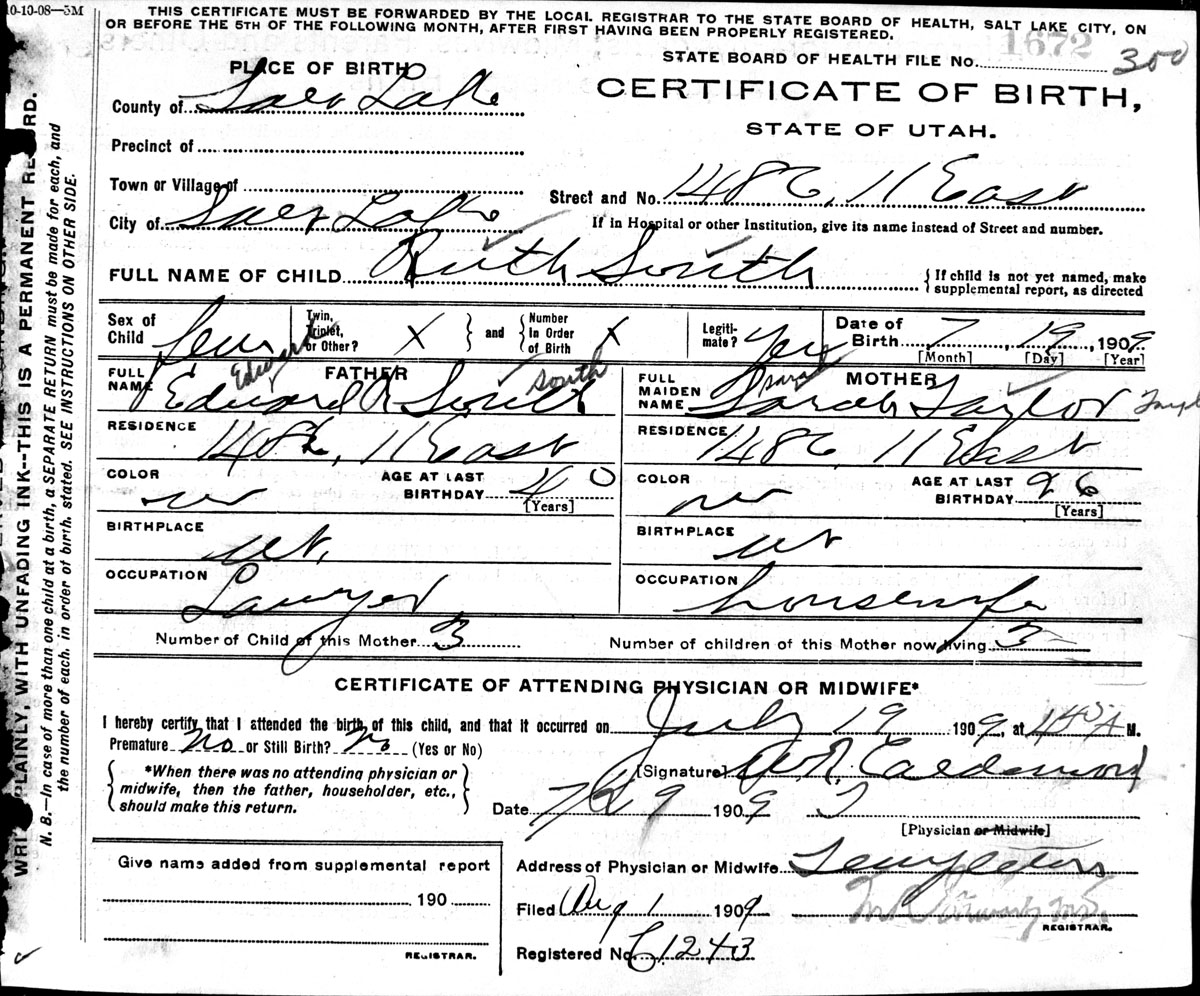 10-10-08—5M
THIS CERTIFICATE MUST BE FORWARDED BY THE LOCAL REGISTRAR TO THE STATE BOARD OF HEALTH, SALT LAKE CITY, ON
OR BEFORE THE 5TH OF THE FOLLOWING MONTH, AFTER FIRST HAVING BEEN PROPERLY REGISTERED.
1672
STATE BOARD OF HEALTH FILE NO. 300
PLACE OF BIRTH
CERTIFICATE OF BIRTH,
STATE OF UTAH.
County of Salt Lake
Precinct of
Town or Village of
Street and No. 1486, 11 East
City of Salt Lake
If in Hospital or other Institution, give its name instead of Street and number.
FULL NAME OF CHILD Ruth South
{If child is not yet named, make
supplemental report, as directed
Sex of Child Fem
Twin, Triplet, or Other? X } and { Number In Order of Birth X
Legiti-mate? Yes
Date of Birth 7, 19, 1909
[Month] [Day] [Year]
FATHER
Edward South
FULL NAME Edward R South
MOTHER
Sarah
FULL MAIDEN NAME Sarah Taylor
RESIDENCE 1486, 11 East
RESIDENCE 1486, 11 East
COLOR w
AGE AT LAST BIRTHDAY 40
[Years]
COLOR w
AGE AT LAST BIRTHDAY 26
[Years]
BIRTHPLACE Ut.
BIRTHPLACE Ut
OCCUPATION Lawyer
OCCUPATION housewife
Number of Child of this Mother 3
Number of children of this Mother now living 3
CERTIFICATE OF ATTENDING PHYSICIAN OR MIDWIFE*
I hereby certify that I attended the birth of this child, and that it occurred on July 19 1909, at 145 A M.
Premature No or Still Birth? No (Yes or No)
{*When there was no attending physician or
midwife, then the father, householder, etc.,
should make this return.}
[Signature]
Date 1909
[Physician or Midwife]
Give name added from supplemental report
190
REGISTRAR.
Address of Physician or Midwife Templeton
Filed Aug 1 1909
REGISTRAR.
Registered No. 1243
WRITE PLAINLY, WITH UNFADING INK--THIS IS A PERMANENT RECORD.
N. B.—In case of more than one child at a birth, a SEPARATE RETURN must be made for each, and
the number of each, in order of birth, stated. SEE INSTRUCTIONS ON OTHER SIDE.